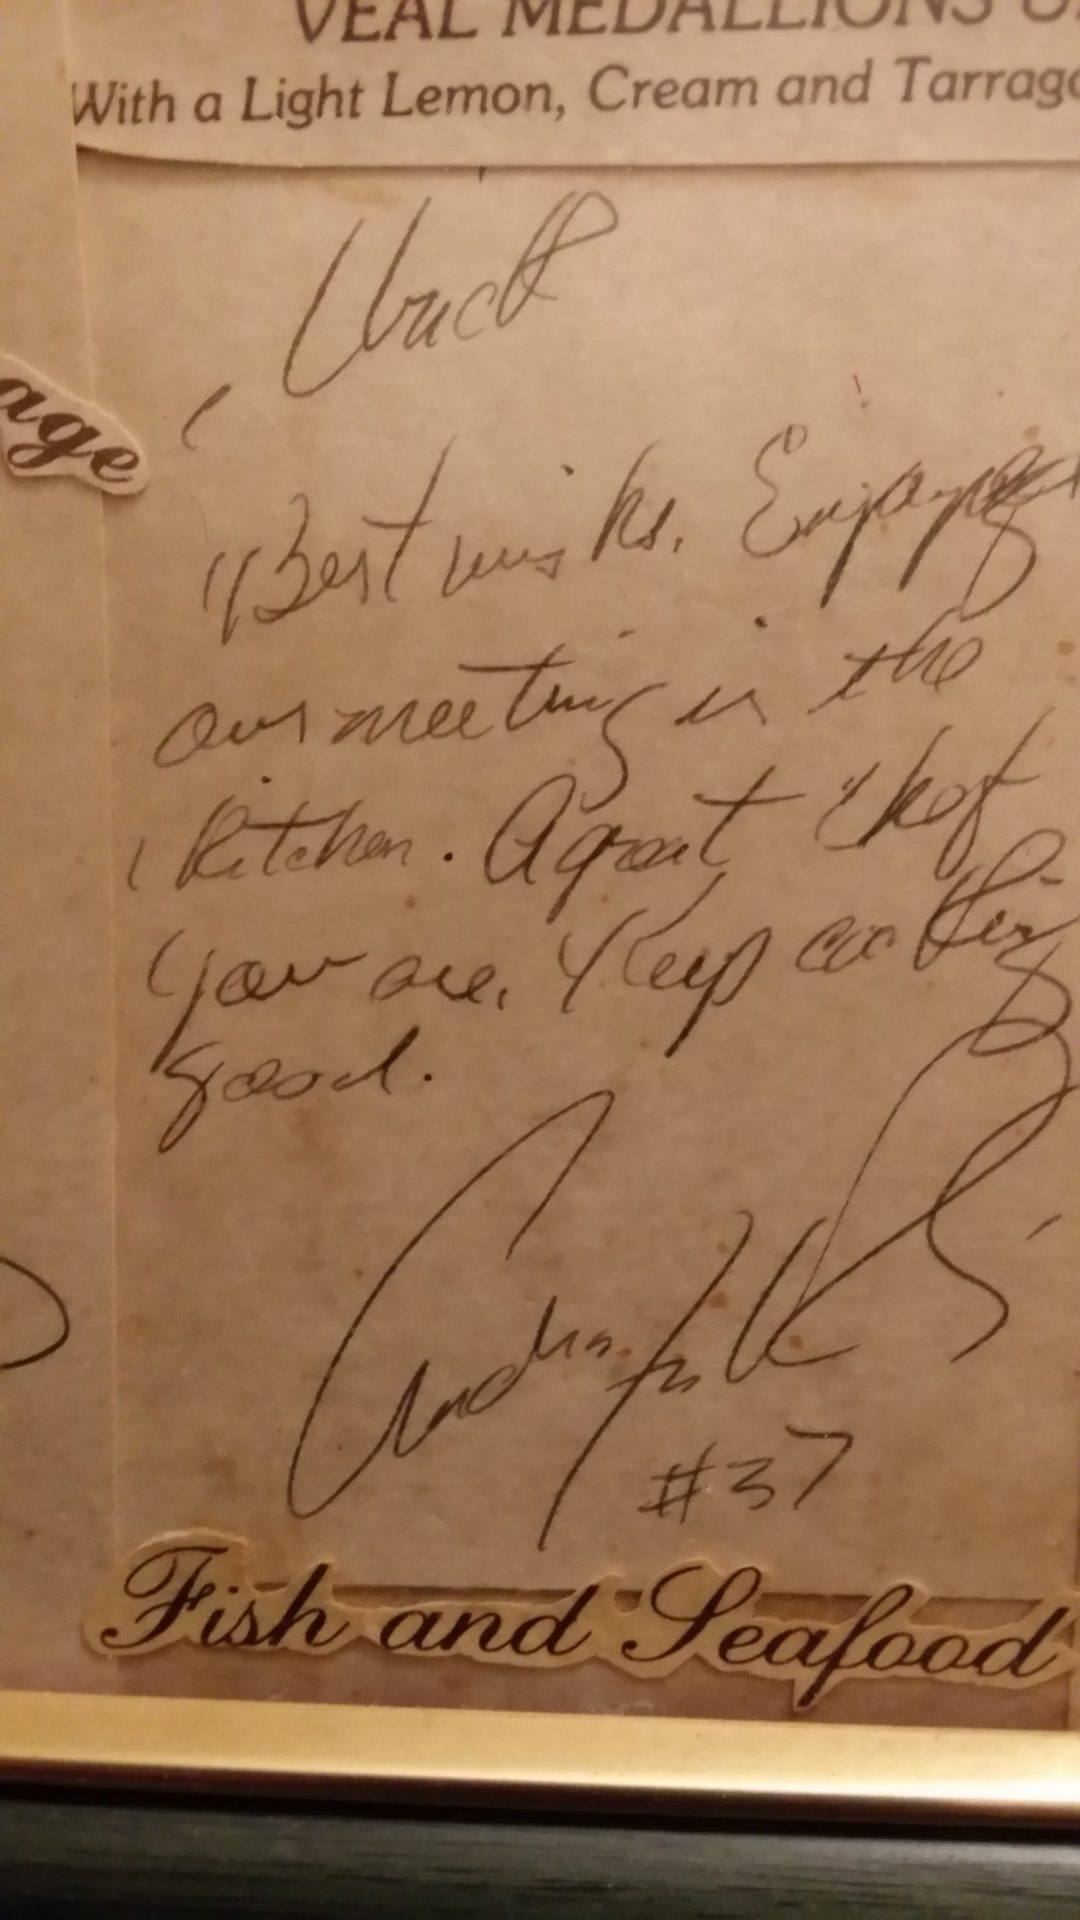 VEAL MEDALLIONS
With a Light Lemon, Cream and Tarrag
age
Best wishes. Enjoyed
our meeting in the
kitchen. A great chef
you are. Keep cooking
good.
#37
Fish and Seafood